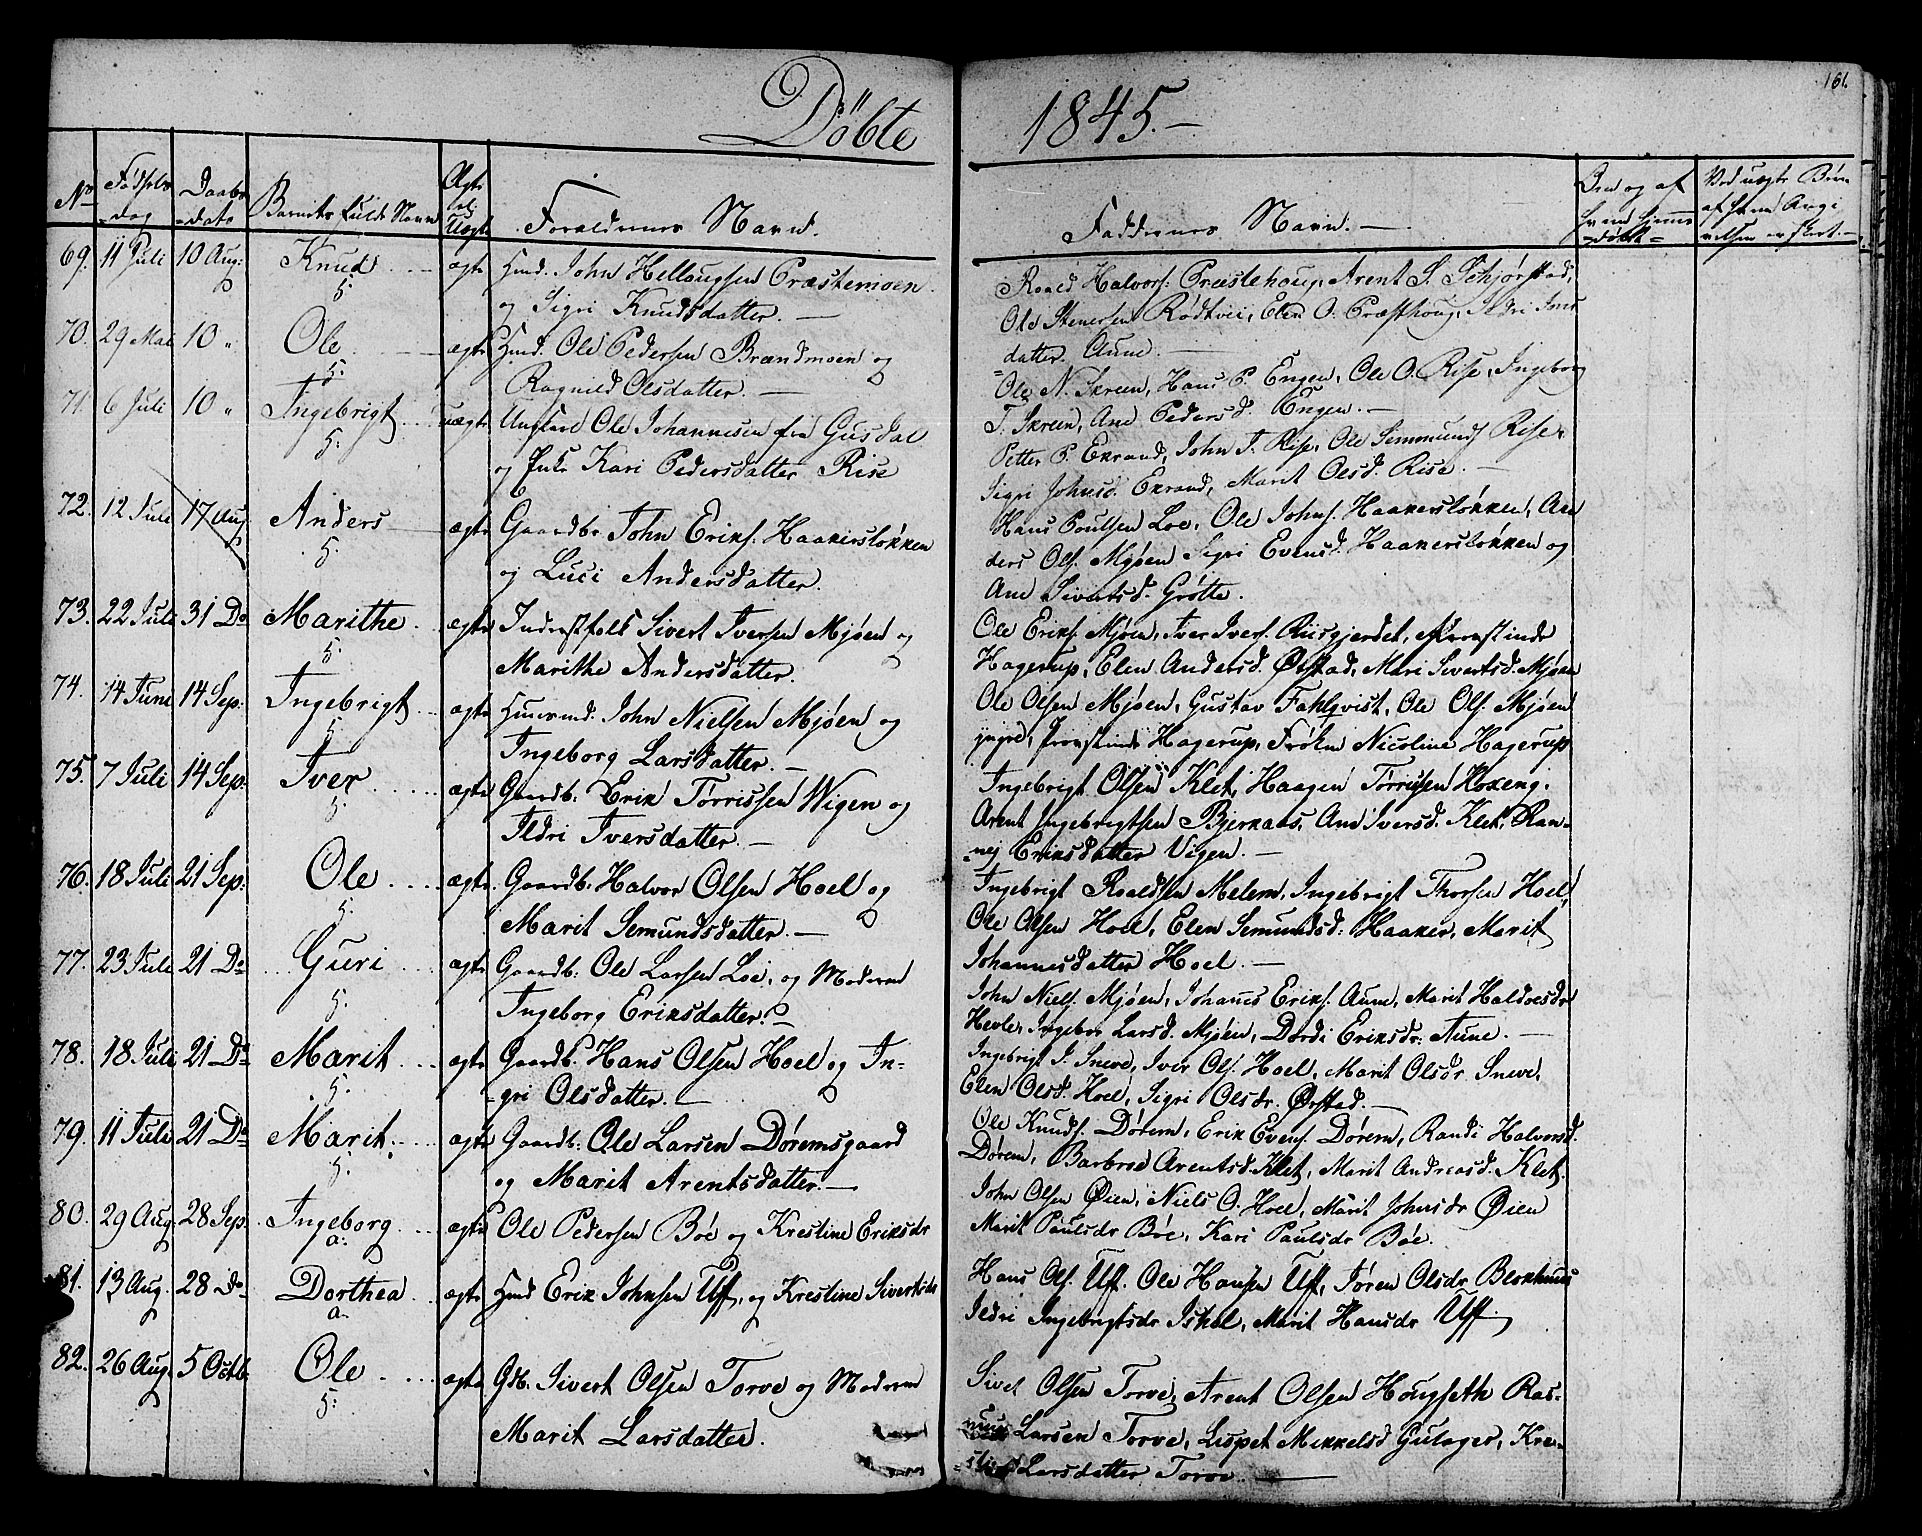 Döbte 1845.-
161.
No Fødsels-dag Daabs-dato Barnets fulde Navn Ægte el. Uægte Forældrenes Navn. Faddernes Navn. Om og af hvem hjemme-døbt Ved uægte Børn af hvem Angivelsen er skeet.
69. 11 Juli 10 Aug: Knud ægte Huusd. John Hellaugsen Præstemoen
og Sigri Knudsdatter.
Roald Halvors: Præstehoug, Arent S. Schjørstad,
Ole Stenersen Rødtvei, Elen O. Præsthoug, Ildri Iver
datter Aune.
70. 29 Mai 10 " Ole ægte Huusd. Ole Pedersen Brændmoen og
Ragnild Olsdatter.
Ole N. Skreen, Hans P. Engen, Ole O. Rise, Ingeborg
T. Skreen, Ane Pedersd. Engen.
71. 6 Juli 10 " Ingebrigt uægte Ungkarl Ole Johannesen fra Gusdal
og Enke Kari Pedersdatter Rise
Petter P. Ekrand, John T. Rise, Ole Simmunds Rise,
Sigri Johnsd. Ekrand, Marit Olesd. Rise.
72. 12 Juli 17 Aug. Anders ægte Gaardbr John Eriks. Haakersløkken
og Luci Andersdatter.
Hans Poulsen Loe, Ole Johns. Haakersløkken, An
ders Ols. Mjøen Sigri Evensd. Haakersløkken og
Ane Sivertsd. Grøtte.
73. 22 Juli 31 Do Marithe ægte Inderstfolk Sivert Iversen Mjøen og
Marithe Andersdatter.
Ole Eriks. Mjøen, Iver Ivers. Riisgjerdet, Provstinde
Hagerup, Elen Andersd. Ørstad, Mari Sivertsd. Mjøen
74. 14 June 14 Sep. Ingebrigt ægte Huusmd. John Nielsen Mjøen og
Ingeborg Larsdatter.
Ole Olsen Mjøen, Gustav Fahlqvist, Ole Ols. Mjøen
yngre, Provstinde Hagerup, Frøken Nicoline Hagerup
75. 7 Juli 14 Sep. Iver ægte Gaardb: Erik Tørrissen Wigen og
Ildri Iversdatter.
Ingebrigt Olsen Klet, Haagen Tørrisen Hoxeng,
Arent Ingebrigtsen Bjerkaas, Ane Iversd. Klet, Ran-
-nej Eriksdatter Vigen.
76. 18 Juli 21 Sep. Ole ægte Gaardb. Halvor Olsen Hoel og
Marit Semundsdatter.
Ingebrigt Roaldsen Melem, Ingebrigt Thorsen Hoel,
Ole Olsen Hoel, Elen Semundsd: Haaker, Marit
Johannesdatter Hoel.
77. 23 Juli 21 Do Guri ægte Gaardb: Ole Larsen Loe, og Moderen
Ingeborg Eriksdatter.
John Niels. Mjøen, Johanes Eriks. Aune, Marit Haldorsdr
Hevle, Ingebor Larsd. Mjøen, Dordi Eriksdr: Aune.
78. 18 Juli 21 Do Marit ægte Gaardb. Hans Olsen Hoel og In-
-gri Olsdatter.
Ingebrigt I. Sneve, Iver Ols. Hoel, Marit Olsdr Sneve,
Elen Olsd. Hoel, Sigri Olsdr. Ørstad.
79. 11 Juli 21 Do Marit ægte Gaardb: Ole Larsen Døremsgaard
og Marit Arentsdatter.
Ole Knuds. Dørem, Erik Evens. Dørem, Randi Halvorsd.
Dørem, Barbroe Arentsd. Klet, Marit Andreasd. Klet,
80. 29 Aug. 28 Sep. Ingeborg ægte Ole Pedersen Böe og Krestine Eriksdr
John Olsen Øien, Niels O. Hoel, Marit Johnsdr Øien
Marit Paulsdr Böe, Kari Paulsdr Böe.
81. 13 Aug. 28 Do Dorthea ægte Huusd Erik Johnsen Uff, og Krestine Sivertsdr
Hans Ols. Uff. Ole Hansen Uff, Jören Olsdr Blekhuus
Ildri Ingebrigtsdr Ishol, Marit Hansdr Uff
82. 26 Aug. 5 Octb. Ole ægte Gdb. Sivert Olsen Torve og Moderen
Marit Larsdatter.
Sivet Olsen Torve, Arent Olsen Hougseth Ras-
mus Larsen Torve, Lispet Mikkelsd Gulager, Kre-
-stine Larsdatter Torve.